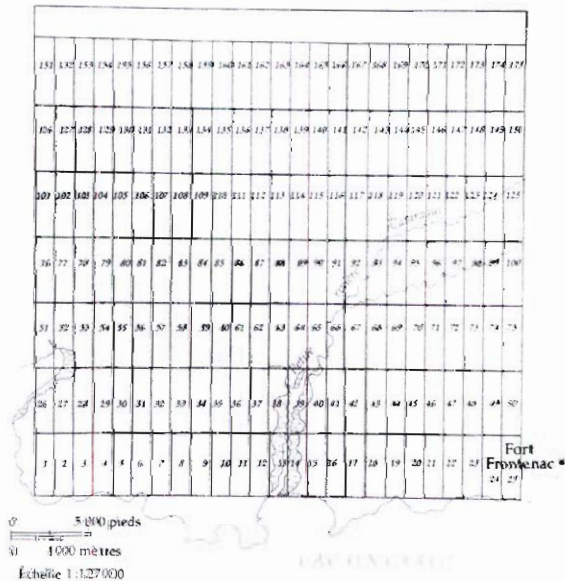 151 152 153 154 155 156 157 158 159 160 161 162 163 164 165 166 167 168 169 170 171 172 173 174 175
126 127 128 129 130 131 132 133 134 135 136 137 138 139 140 141 142 143 144 145 146 147 148 149 150
101 102 103 104 105 106 107 108 109 110 111 112 113 114 115 116 117 118 119 120 121 122 123 124 125
76 77 78 79 80 81 82 83 84 85 86 87 88 89 90 91 92 93 94 95 96 97 98 99 100
51 52 53 54 55 56 57 58 59 60 61 62 63 64 65 66 67 68 69 70 71 72 73 74 75
26 27 28 29 30 31 32 33 34 35 36 37 38 39 40 41 42 43 44 45 46 47 48 49 50
1 2 3 4 5 6 7 8 9 10 11 12 13 14 15 16 17 18 19 20 21 22 23 24 25
Fort
Frontenac
0 5 000 pieds
0 4 000 mètres
Échelle 1:127000